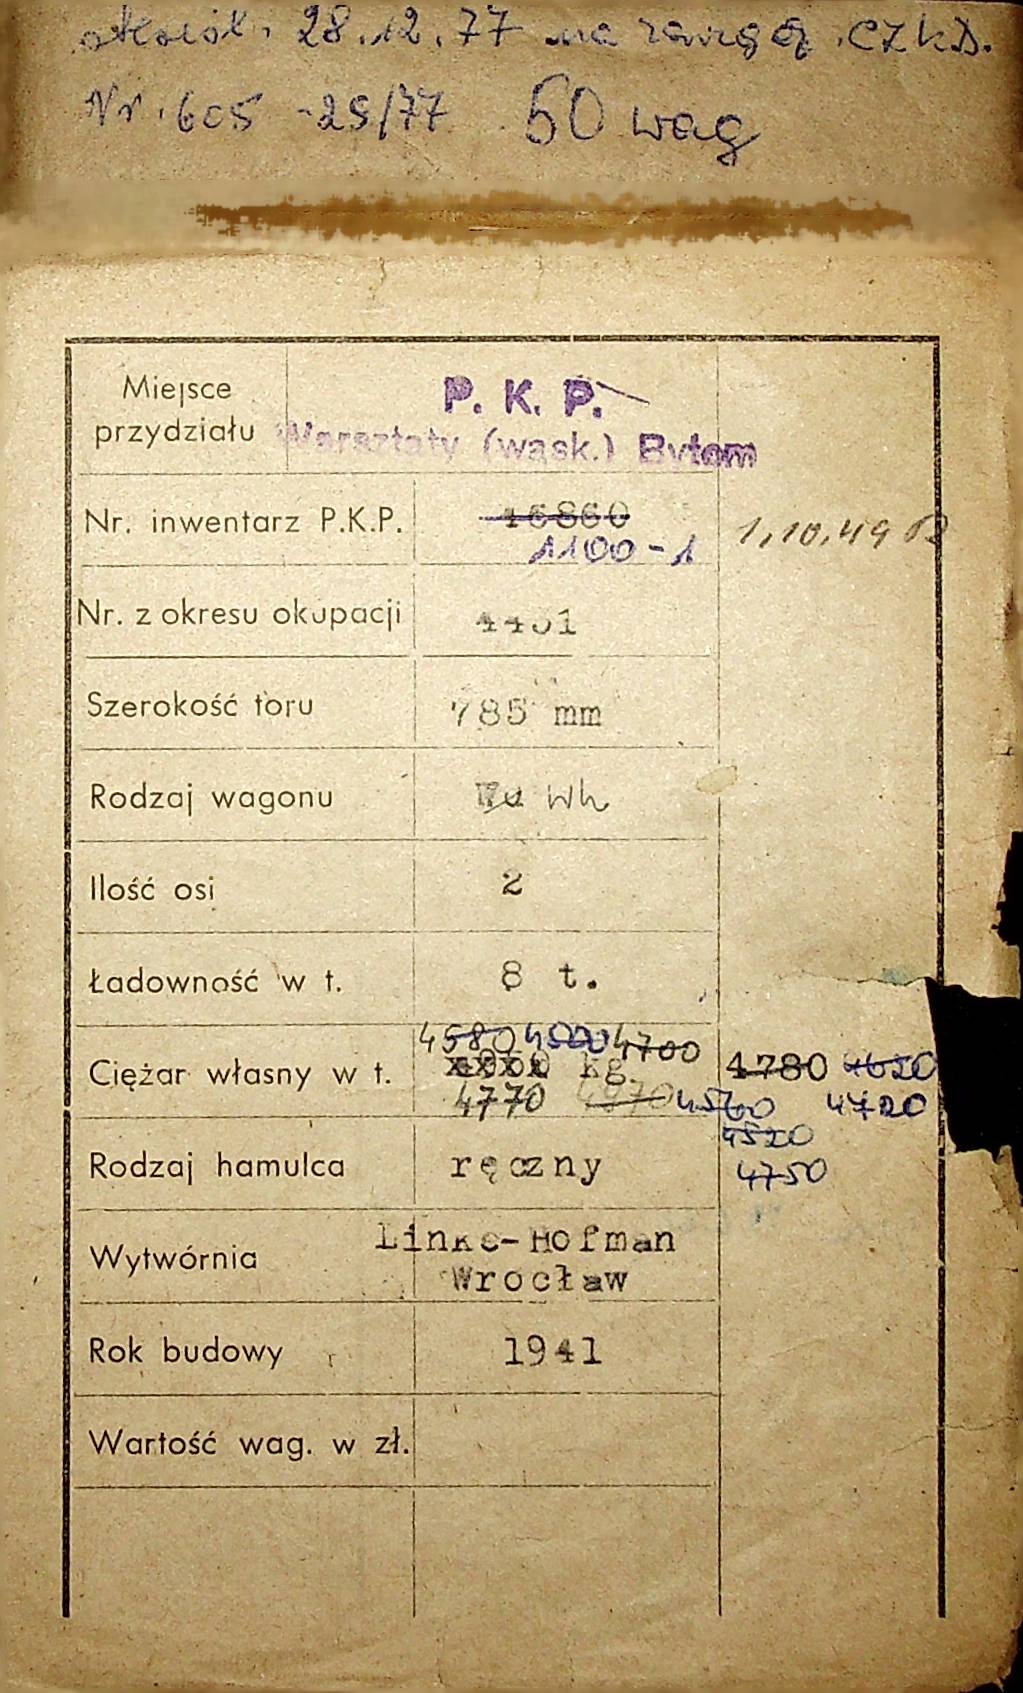 28.12.77 na CZKD.
Nr. 605 -25/77 50 wag
Miejsce przydziału
P. K. P.
Warsztaty (wąsk.) Bytom
Nr. inwentarz P.K.P. 16860
1100-1 1,10,49
Nr. z okresu okupacji
Szerokość toru 785 mm
Rodzaj wagonu Wh
Ilość osi 2
Ładowność w t. 8 t.
4580 4500 4700
Ciężar własny w t. kg. 4780
4770 4560 4720
4520
Rodzaj hamulca ręczny 4750
Linke-Hofman
Wytwórnia
Wrocław
Rok budowy 1941
Wartość wag. w zł.